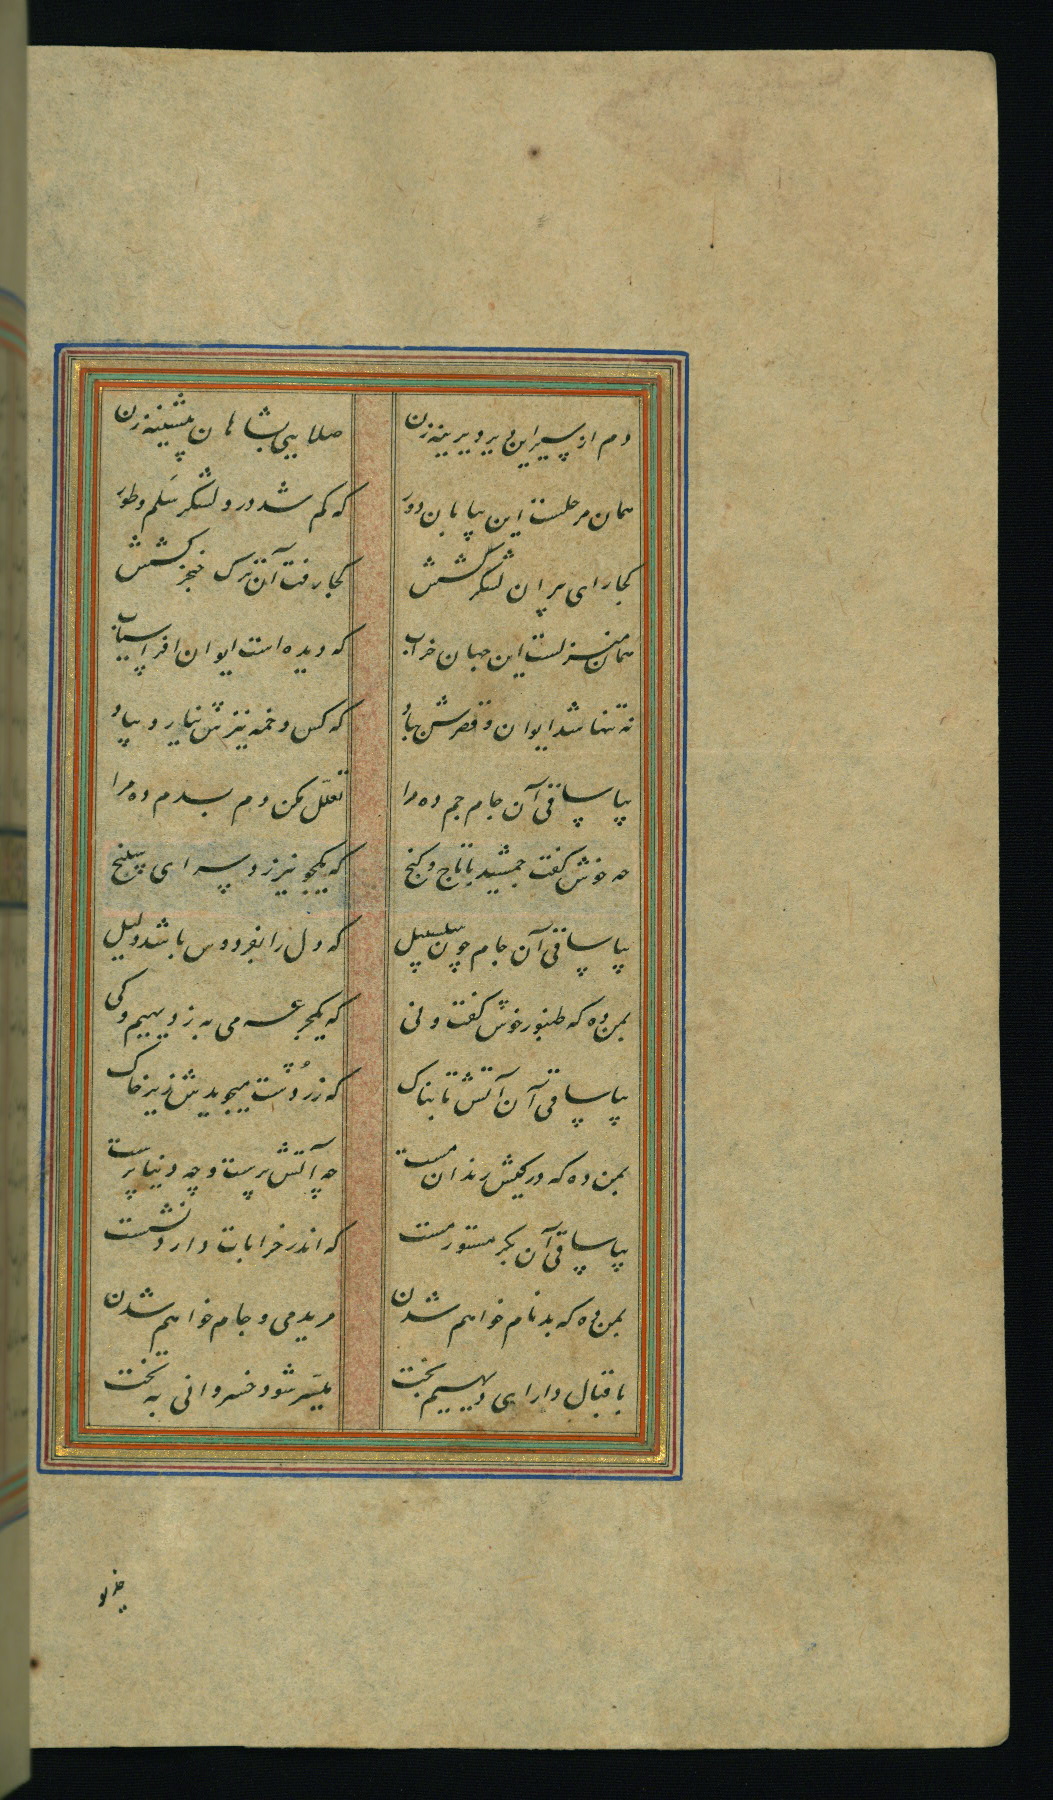 دم از سیر این دیر دیرینه زن صلایی بشاهان پیشینه زن
همان مرحلست این بیابان دور که گم شد درو لشکر سلم و طور
کجا رای پیران لشکرکشش کجا رفت آن ترک خنجرکشش
همان منزلست این جهان خراب که دیده است ایوان افراسیاب
نه تنها شد ایوان و قصرش بباد که کس دخمه نیزش نیارد بیاد
بیا ساقی آن جام جم ده مرا تعلل مکن دم بدم ده مرا
چه خوش گفت جمشید با تاج و گنج که یکجو نیرزد سرای سپنج
بیا ساقی آن جام چون سلسبیل که دل را بفردوس باشد دلیل
بمن ده که طنبور خوش گفت و نی که یکجرعه می به ز دیهیم و کی
بیا ساقی آن آتش تابناک که زردشت میجویدش زیر خاک
بمن ده که در کیش رندان مست چه آتش پرست و چه دنیا پرست
بیا ساقی آن بکر مستور مست که اندر خرابات دارد نشست
بمن ده که بدنام خواهم شدن مرید می و جام خواهم شدن
باقبال دارای دیهیم بخت میسر شود خسروانی به تخت